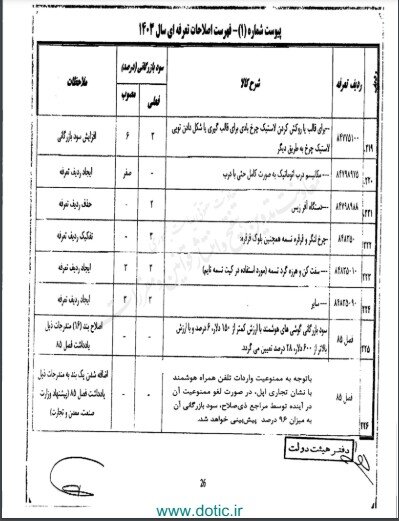 پیوست شماره (۱)- فهرست اصلاحات تعرفه ای سال ۱۴۰۳
ردیف
ردیف تعرفه
شرح کالا
سود بازرگانی (درصد)
فعلی
مصوب
ملاحظات
۲۱۹.
۸۴۷۷۵۱۰۰
--برای قالب یا روکش کردن لاستیک چرخ بادی برای قالب گیری یا شکل دادن تویی
لاستیک چرخ به طریق دیگر
۲
۶
افزایش سود بازرگانی
۲۲۰.
۸۴۷۹۸۹۷۵
---مکانیسم درب اتوماتیک به صورت کامل حتی با درب
-
صفر
ایجاد ردیف تعرفه
۲۲۱.
۸۴۷۹۸۹۸۸
---دستگاه آفر ریس
۲
۰
حذف ردیف تعرفه
۲۲۲
۸۴۸۳۵۰
-چرخ لنگر و قرقره تسمه همچنین بلوک قرقره:
۳
۰
تفکیک ردیف تعرفه
۲۲۳
۸۴۸۳۵۰۱۰
---سفت کن و هرزه گرد تسمه (مورد استفاده در کیت تسمه تایم)
۲
۲
ایجاد ردیف تعرفه
۲۲۴
۸۴۸۳۵۰۹۰
---سایر
۲
۳
ایجاد ردیف تعرفه
۲۲۵
فصل ۸۵
سود بازرگانی گوشی های هوشمند با ارزش کمتر از ۱۵۰ دلار، ۶ درصد و با ارزش
بالاتر از ۶۰۰ دلار، ۲۸ درصد تعیین می گردد.
-
-
اصلاح بند (۱۶) مندرجات ذیل
یادداشت فصل ۸۵
۲۲۶
فصل ۸۵
باتوجه به ممنوعیت واردات تلفن همراه هوشمند
با نشان تجاری اپل، در صورت لغو ممنوعیت آن
در آینده توسط مراجع ذی‌صلاح، سود بازرگانی آن
به میزان ۹۶ درصد پیش‌بینی خواهد شد.
-
-
اضافه شدن یک بند به مندرجات ذیل
یادداشت فصل ۸۵ (پیشنهاد وزارت
صنعت، معدن و تجارت)
دفتر هیئت دولت
26
www.dotic.ir